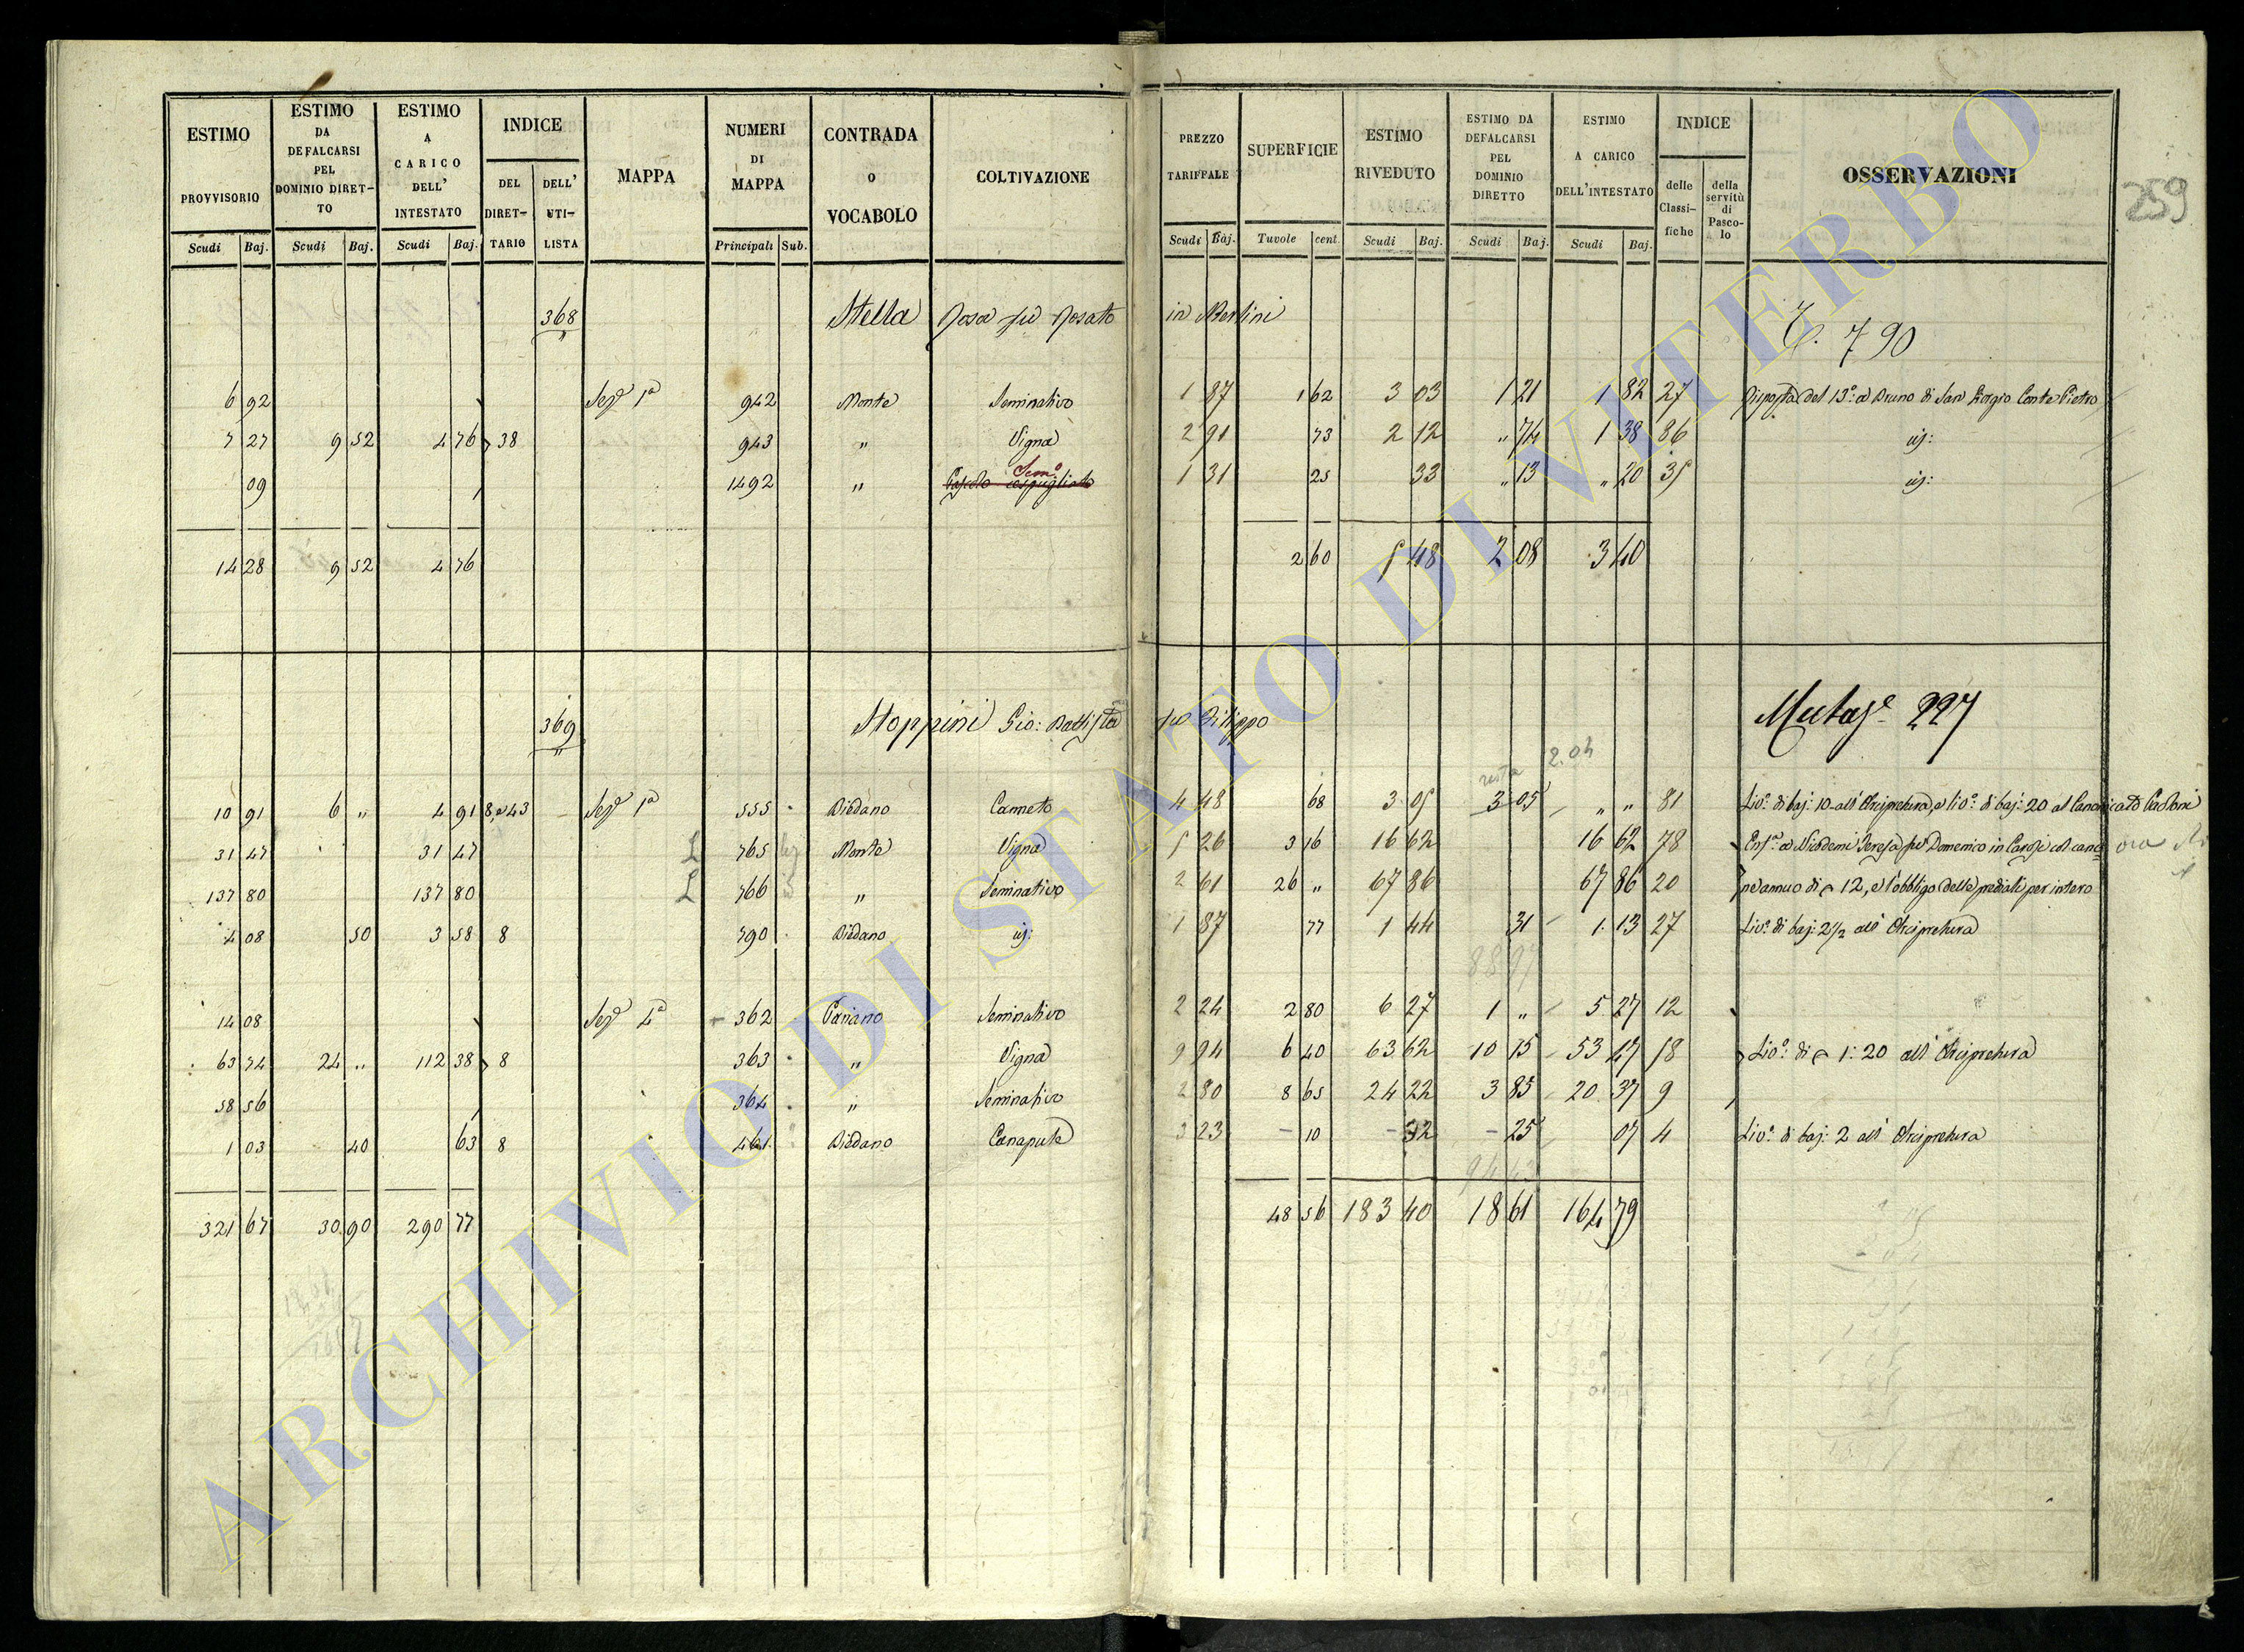 259
ESTIMO PROVVISORIO Scudi Baj. ESTIMO DA DEFALCARSI PEL DOMINIO DIRETTO Scudi Baj. ESTIMO A CARICO DELL' INTESTATO Scudi Baj. INDICE DEL DIRETTARIO DELL' UTILISTA MAPPA NUMERI DI MAPPA Principali Sub. CONTRADA O VOCABOLO COLTIVAZIONE PREZZO TARIFFALE Scudi Baj. SUPERFICIE Tavole cent. ESTIMO RIVEDUTO Scudi Baj. ESTIMO DA DEFALCARSI PEL DOMINIO DIRETTO Scudi Baj. ESTIMO A CARICO DELL'INTESTATO Scudi Baj. INDICE delle Classifiche della servitù di Pascolo OSSERVAZIONI
368 Stella Rosa fu Rosato in Merlini
790
6 92 Sez.e 1a 942 Monte Seminativo 1 87 1 62 3 03 1 21 1 82 27 Risposta del 13.o a Bruno di San Giorgio Conte Pietro
7 27 9 52 4 76 38 943 " Vigna 2 91 73 2 12 " 74 1 38 86 id:
09 1492 " Sem.o Pascolo cespugliato 1 31 25 33 " 13 " 20 35 id:
14 28 9 52 4 76 2 60 5 48 2 08 3 40
369 Stoppini Gio: Battista fu Filippo
Mutaz.e 227
resta 2.04
10 91 6 " 4 91 8, e 43 Sez.e 1a 555 Biedano Canneto 4 48 68 3 05 3 05 " " 81 Liv.o di baj: 10 all' Arcipretura, e liv.o di baj: 20 al Canonicato
31 47 31 47 L 765 Monte Vigna 5 26 3 16 16 62 16 62 78 Enf.a a Nicodemi Teresa fu Domenico in col cano ora
137 80 137 80 L 766 " Seminativo 2 61 26 " 67 86 67 86 20 ne annuo di 12, e l'obbligo delle prediali per intero
4 08 50 3 58 8 790 Biedano id: 1 87 77 1 44 31 1 13 27 Liv.o di baj: 2 1/2 all' Arcipretura
88 97
14 08 Sez.e 4a 362 Cariano Seminativo 2 24 2 80 6 27 1 " 5 27 12
63 74 24 " 112 38 8 363 " Vigna 9 94 6 40 63 62 10 15 53 47 18 Liv.o di 1: 20 all' Arcipretura
58 56 364 " Seminativo 2 80 8 65 24 22 3 85 20 37 9
1 03 40 63 8 461 Biedano Canapule 3 23 10 32 25 07 4 Liv.o di baj: 2 all' Arcipretura
321 67 30 90 290 77 48 56 183 40 18 61 164 79
ARCHIVIO DI STATO DI VITERBO